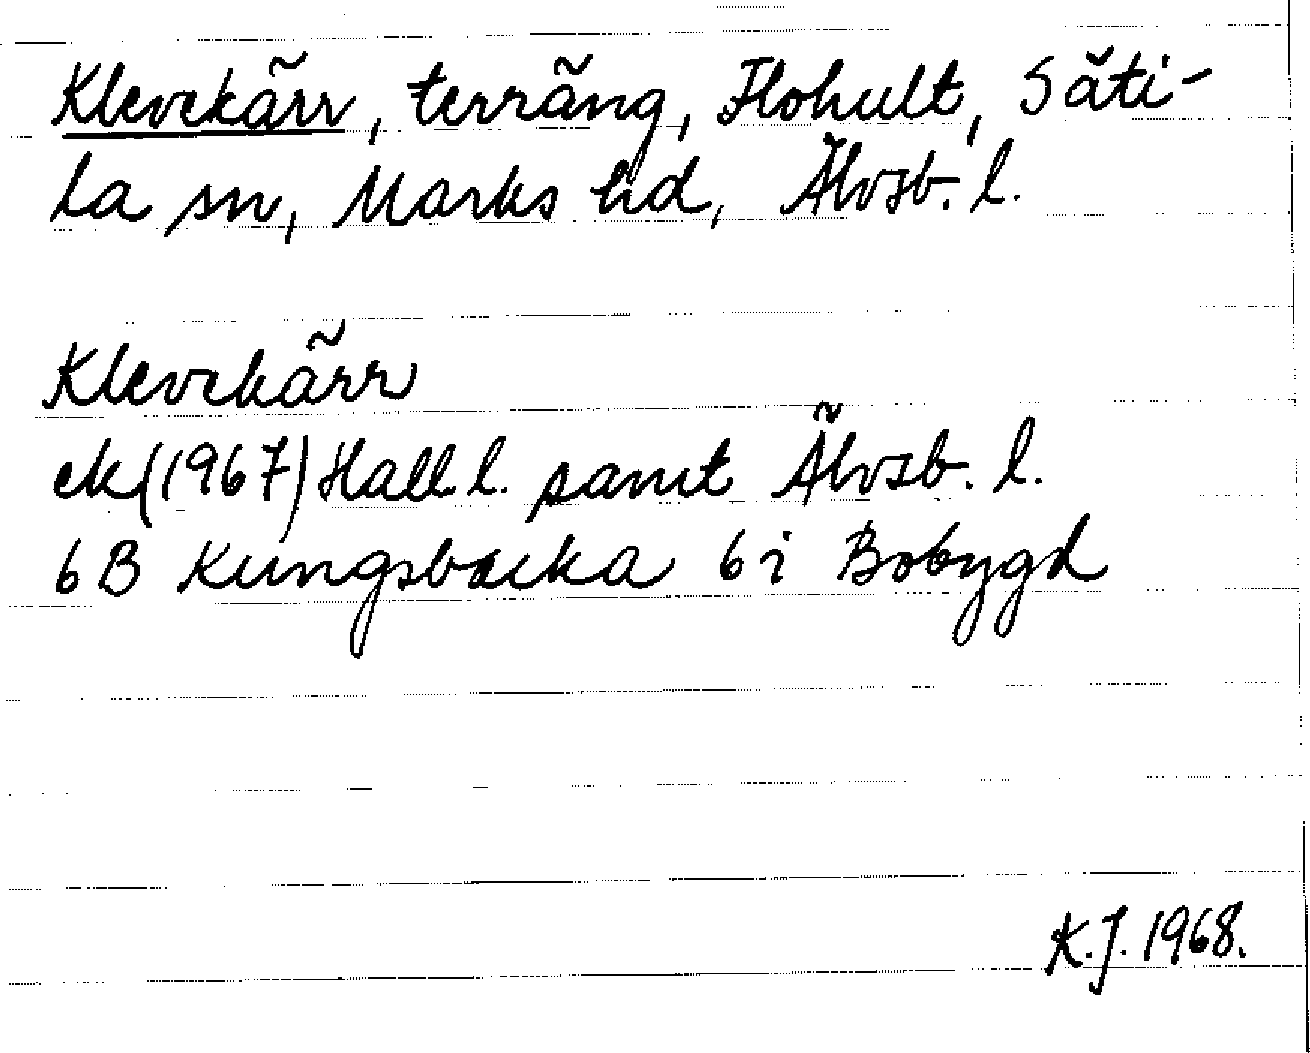 Klevekärr, terräng, Flohult, Säti-
la sn, Marks hd, Älvsb. l.
Klevekärr
ek (1967) Hall. l. samt Älvsb. l.
6B Kungsbacka 6i Bobygd
K.J. 1968.